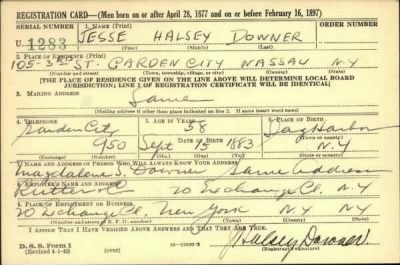 REGISTRATION CARD—(Men born on or after April 28, 1877 and on or before February 16, 1897)
SERIAL NUMBER 1. NAME (Print) ORDER NUMBER
U 1283 JESSE HALSEY DOWNER
(First) (Middle) (Last)
2. PLACE OF RESIDENCE (Print)
105-3rd ST. GARDEN CITY NASSAU N.Y
(Number and street) (Town, township, village, or city) (County) (State)
[THE PLACE OF RESIDENCE GIVEN ON THE LINE ABOVE WILL DETERMINE LOCAL BOARD
JURISDICTION; LINE 2 OF REGISTRATION CERTIFICATE WILL BE IDENTICAL]
3. MAILING ADDRESS
Same
(Mailing address if other than place indicated on line 2. If same insert word same)
4. TELEPHONE 5. AGE IN YEARS 6. PLACE OF BIRTH
Garden City 58 Sag Harbor
DATE OF BIRTH (Town or county)
950 Sept 15 1883 N.Y
(Exchange) (Number) (Mo.) (Day) (Yr.) (State or country)
7. NAME AND ADDRESS OF PERSON WHO WILL ALWAYS KNOW YOUR ADDRESS
Magdalene S. Downer Same address
8. EMPLOYER'S NAME AND ADDRESS
20 Exchange Pl. N.Y
9. PLACE OF EMPLOYMENT OR BUSINESS
20 Exchange Pl New York N.Y N.Y
(Number and street or R. F. D. number) (Town) (County) (State)
I AFFIRM THAT I HAVE VERIFIED ABOVE ANSWERS AND THAT THEY ARE TRUE.
D. S. S. Form 1
(Revised 4-1-42) (over)
J Halsey Downer
(Registrant's signature)